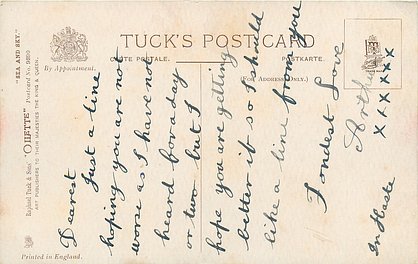 TUCK'S POSTCARD
CARTE POSTALE.
POSTKARTE.
(FOR ADDRESS ONLY.)
By Appointment.
"SEA AND SKY."
"OILETTE" Postcard No. 
Raphael Tuck & Sons'
ART PUBLISHERS TO THEIR MAJESTIES THE KING & QUEEN.
Printed in England.
Dearest
Just a line
hoping you are not
worse as I have not
heard for a day
or two but I
hope you are getting
better if so I should
like a line from you
Fondest Love
Arthur
x x x x x x
In Haste